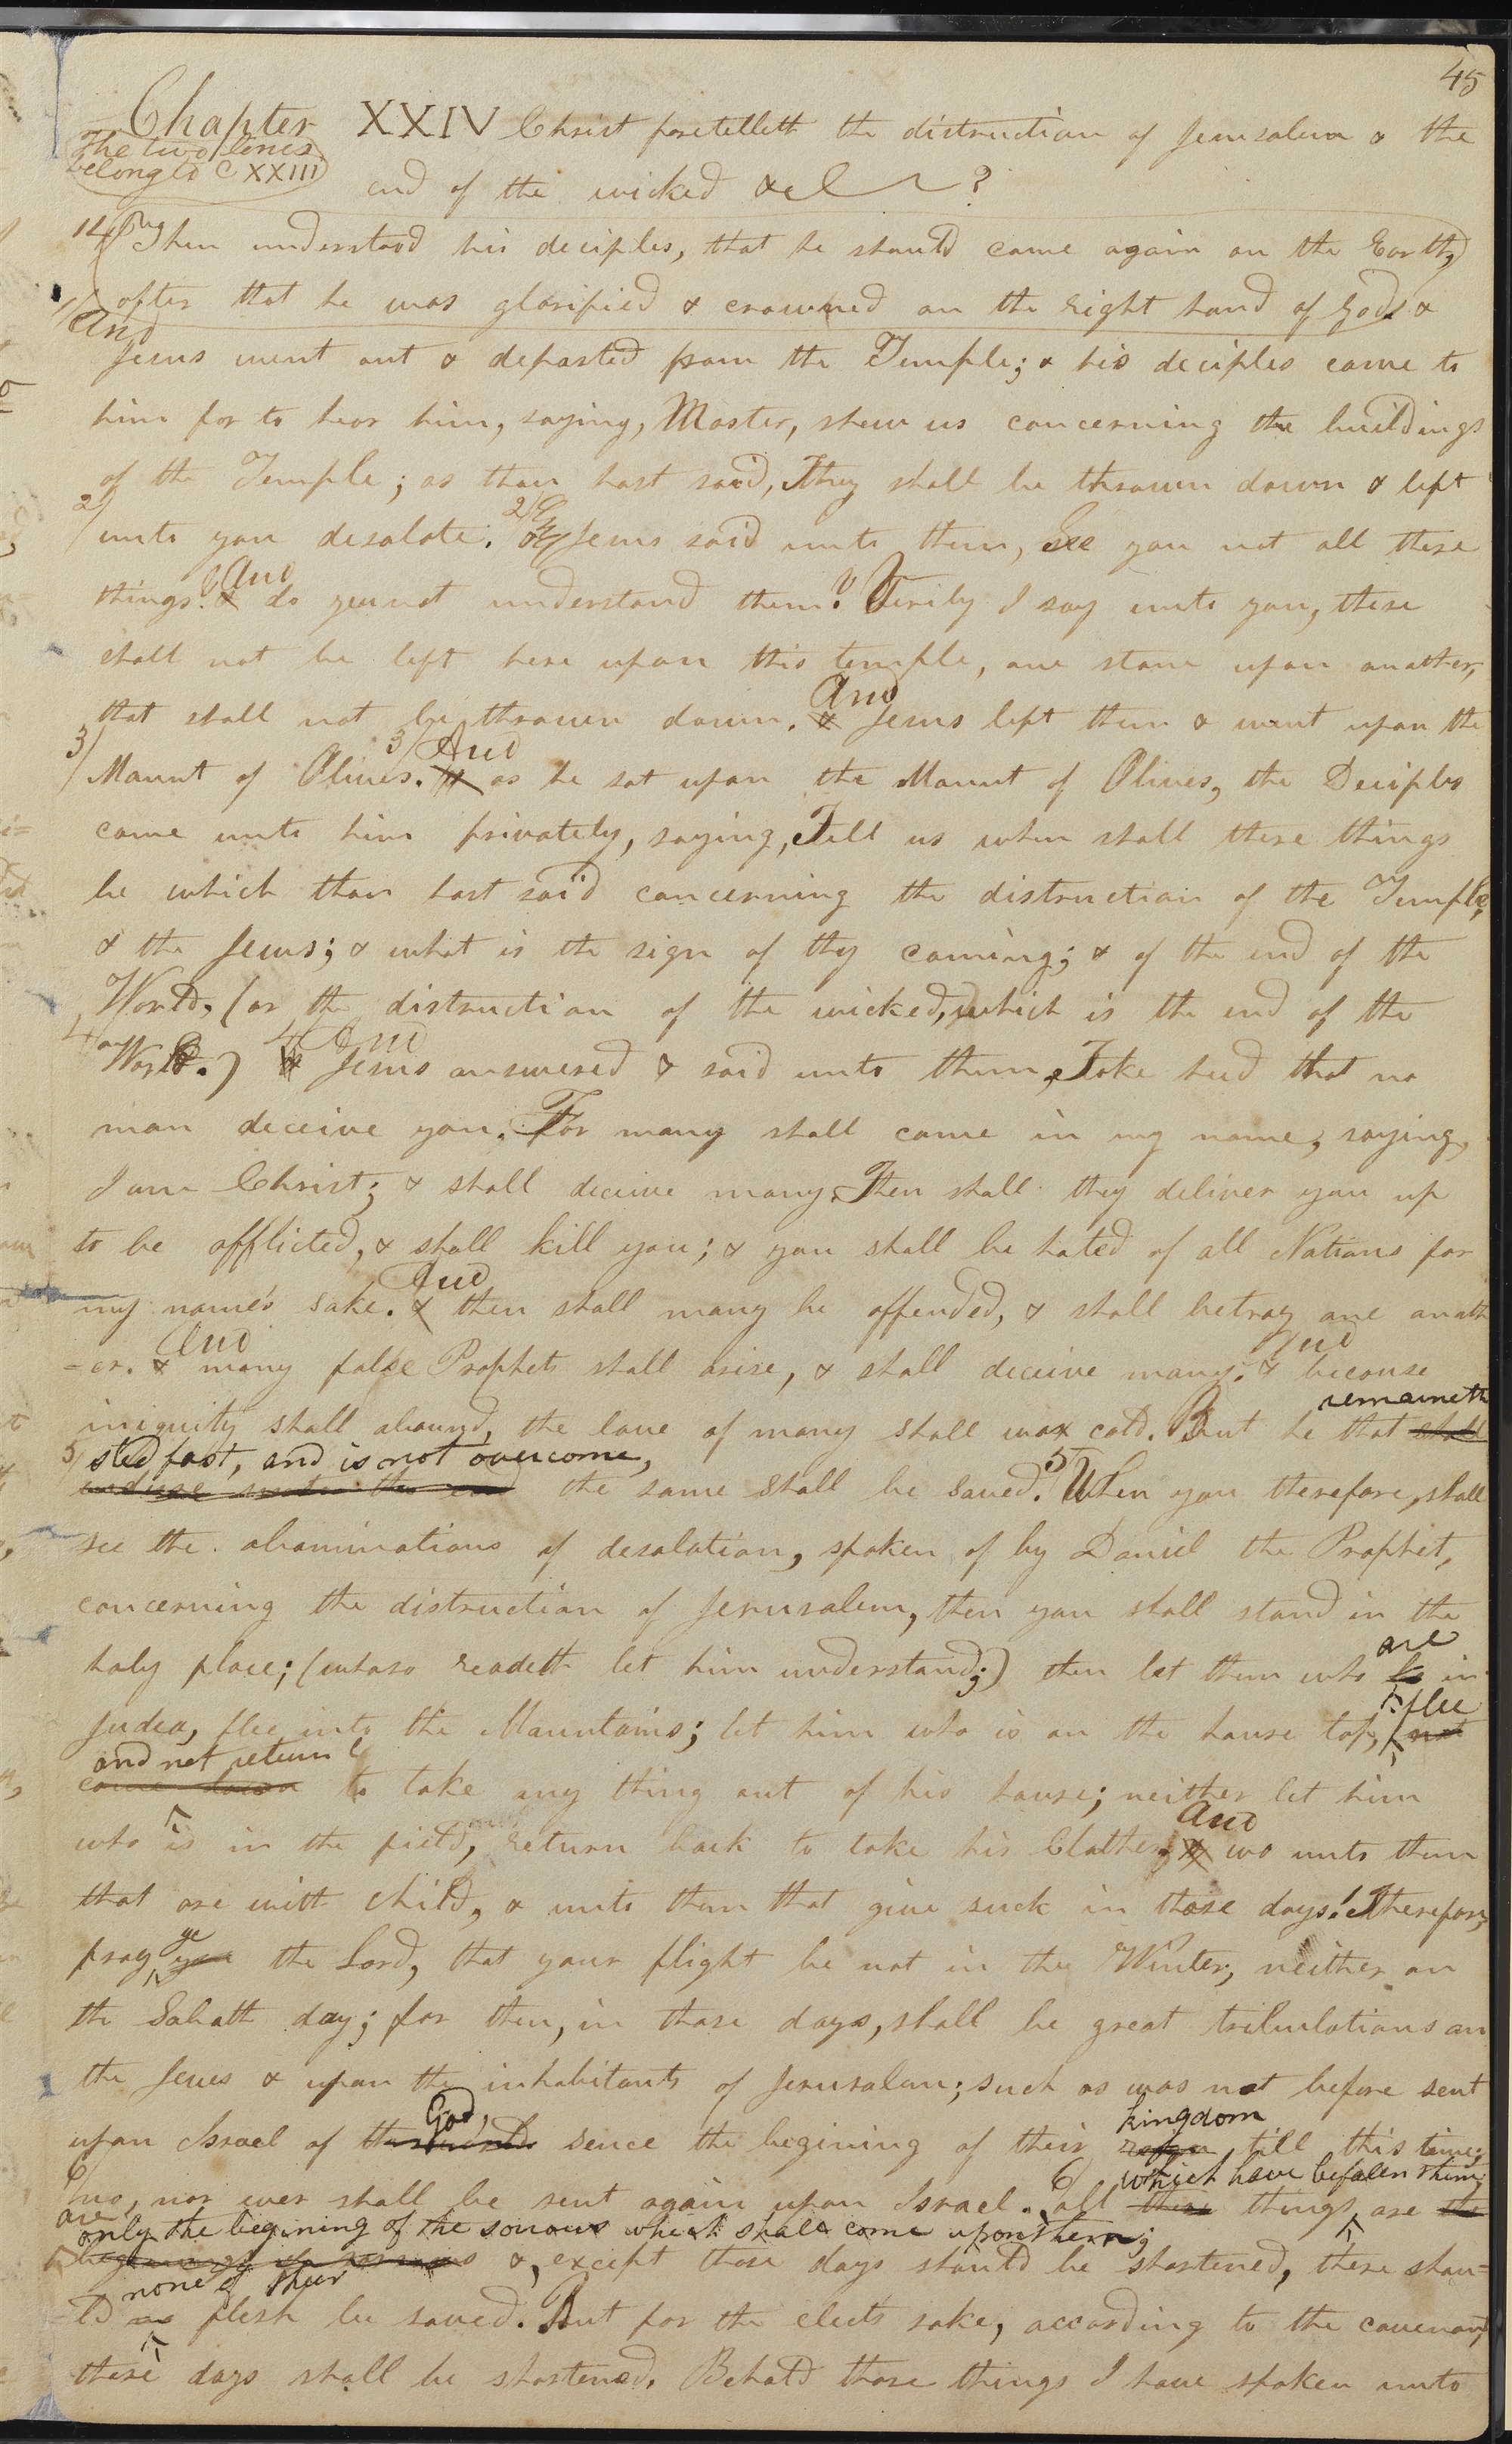 45
Chapter XXIV Christ foretelleth the distruction of Jerusalem & the
The two lines
belong to C XXIII
end of the wicked &c ?
12/ Then understood his deciples, that he should come again on the Earth,
after that he was glorified & crowned on the right hand of God. &
1/ And
Jesus went out & departed from the Temple; & his deciples came to
him for to hear him, saying, Master, shew us concerning the buildings
of the Temple; as thou hast said, They shall be thrown down & left
2/ unto you desolate. 2/ & Jesus said unto them, See you not all these
And
things? & do you not understand them? Verily I say unto you, there
shall not be left here upon this temple, one stone upon another,
And
that shall not be thrown down. & Jesus left them & went upon the
3/ 3/ And
Mount of Olives. & as he sat upon the Mount of Olives, the Deciples
came unto him privately, saying, Tell us when shall these things
be which thou hast said concerning the distruction of the Temple,
& the Jews; & what is the sign of thy coming; & of the end of the
World, (or the distruction of the wicked, which is the end of the
4/ 4/ And
World.) & Jesus answered & said unto them, Take heed that no
man deceive you. For many shall come in my name, saying,
I am Christ; & shall deceive many. Then shall they deliver you up
to be afflicted, & shall kill you; & you shall be hated of all Nations for
And
my name's sake. & then shall many be offended, & shall betray one anoth
And And
=er. & many false Prophets shall arise, & shall deceive many. & because
remaineth
iniquity shall abound, the love of many shall wax cold. But he that shall
5/ stedfast, and is not overcome,
endure unto the end the same shall be saved. 5 When you therefore, shall
see the abominations of desolation, spoken of by Daniel the Prophet,
concerning the distruction of Jerusalem, then you shall stand in the
are
holy place; (whoso readeth let him understand;) then let them who be in
flee
Judea, flee into the Mountains; let him who is on the house top, not
and not return
come down to take any thing out of his house; neither let him
And
who is in the field, return back to take his Clothes; & wo unto them
that are with child, & unto them that give suck in those days! Therefore,
ye
pray you the Lord, that your flight be not in the Winter, neither on
the Sabath day; for then, in those days, shall be great tribulations on
the Jews & upon the inhabitants of Jerusalem; such as was not before sent
God, kingdom
upon Israel of the world sence the begining of their reign till this time;
6/ 6/ which have befalen them
no, nor ever shall be sent again upon Israel. all these things are the
are
only the begining of the sorrows which shall come upon them;
beginnings of sorrows &, except those days should be shortened, there shou=
none of their
=ld no flesh be saved. But for the elects sake, according to the covenant,
these days shall be shortened. Behold those things I have spoken unto